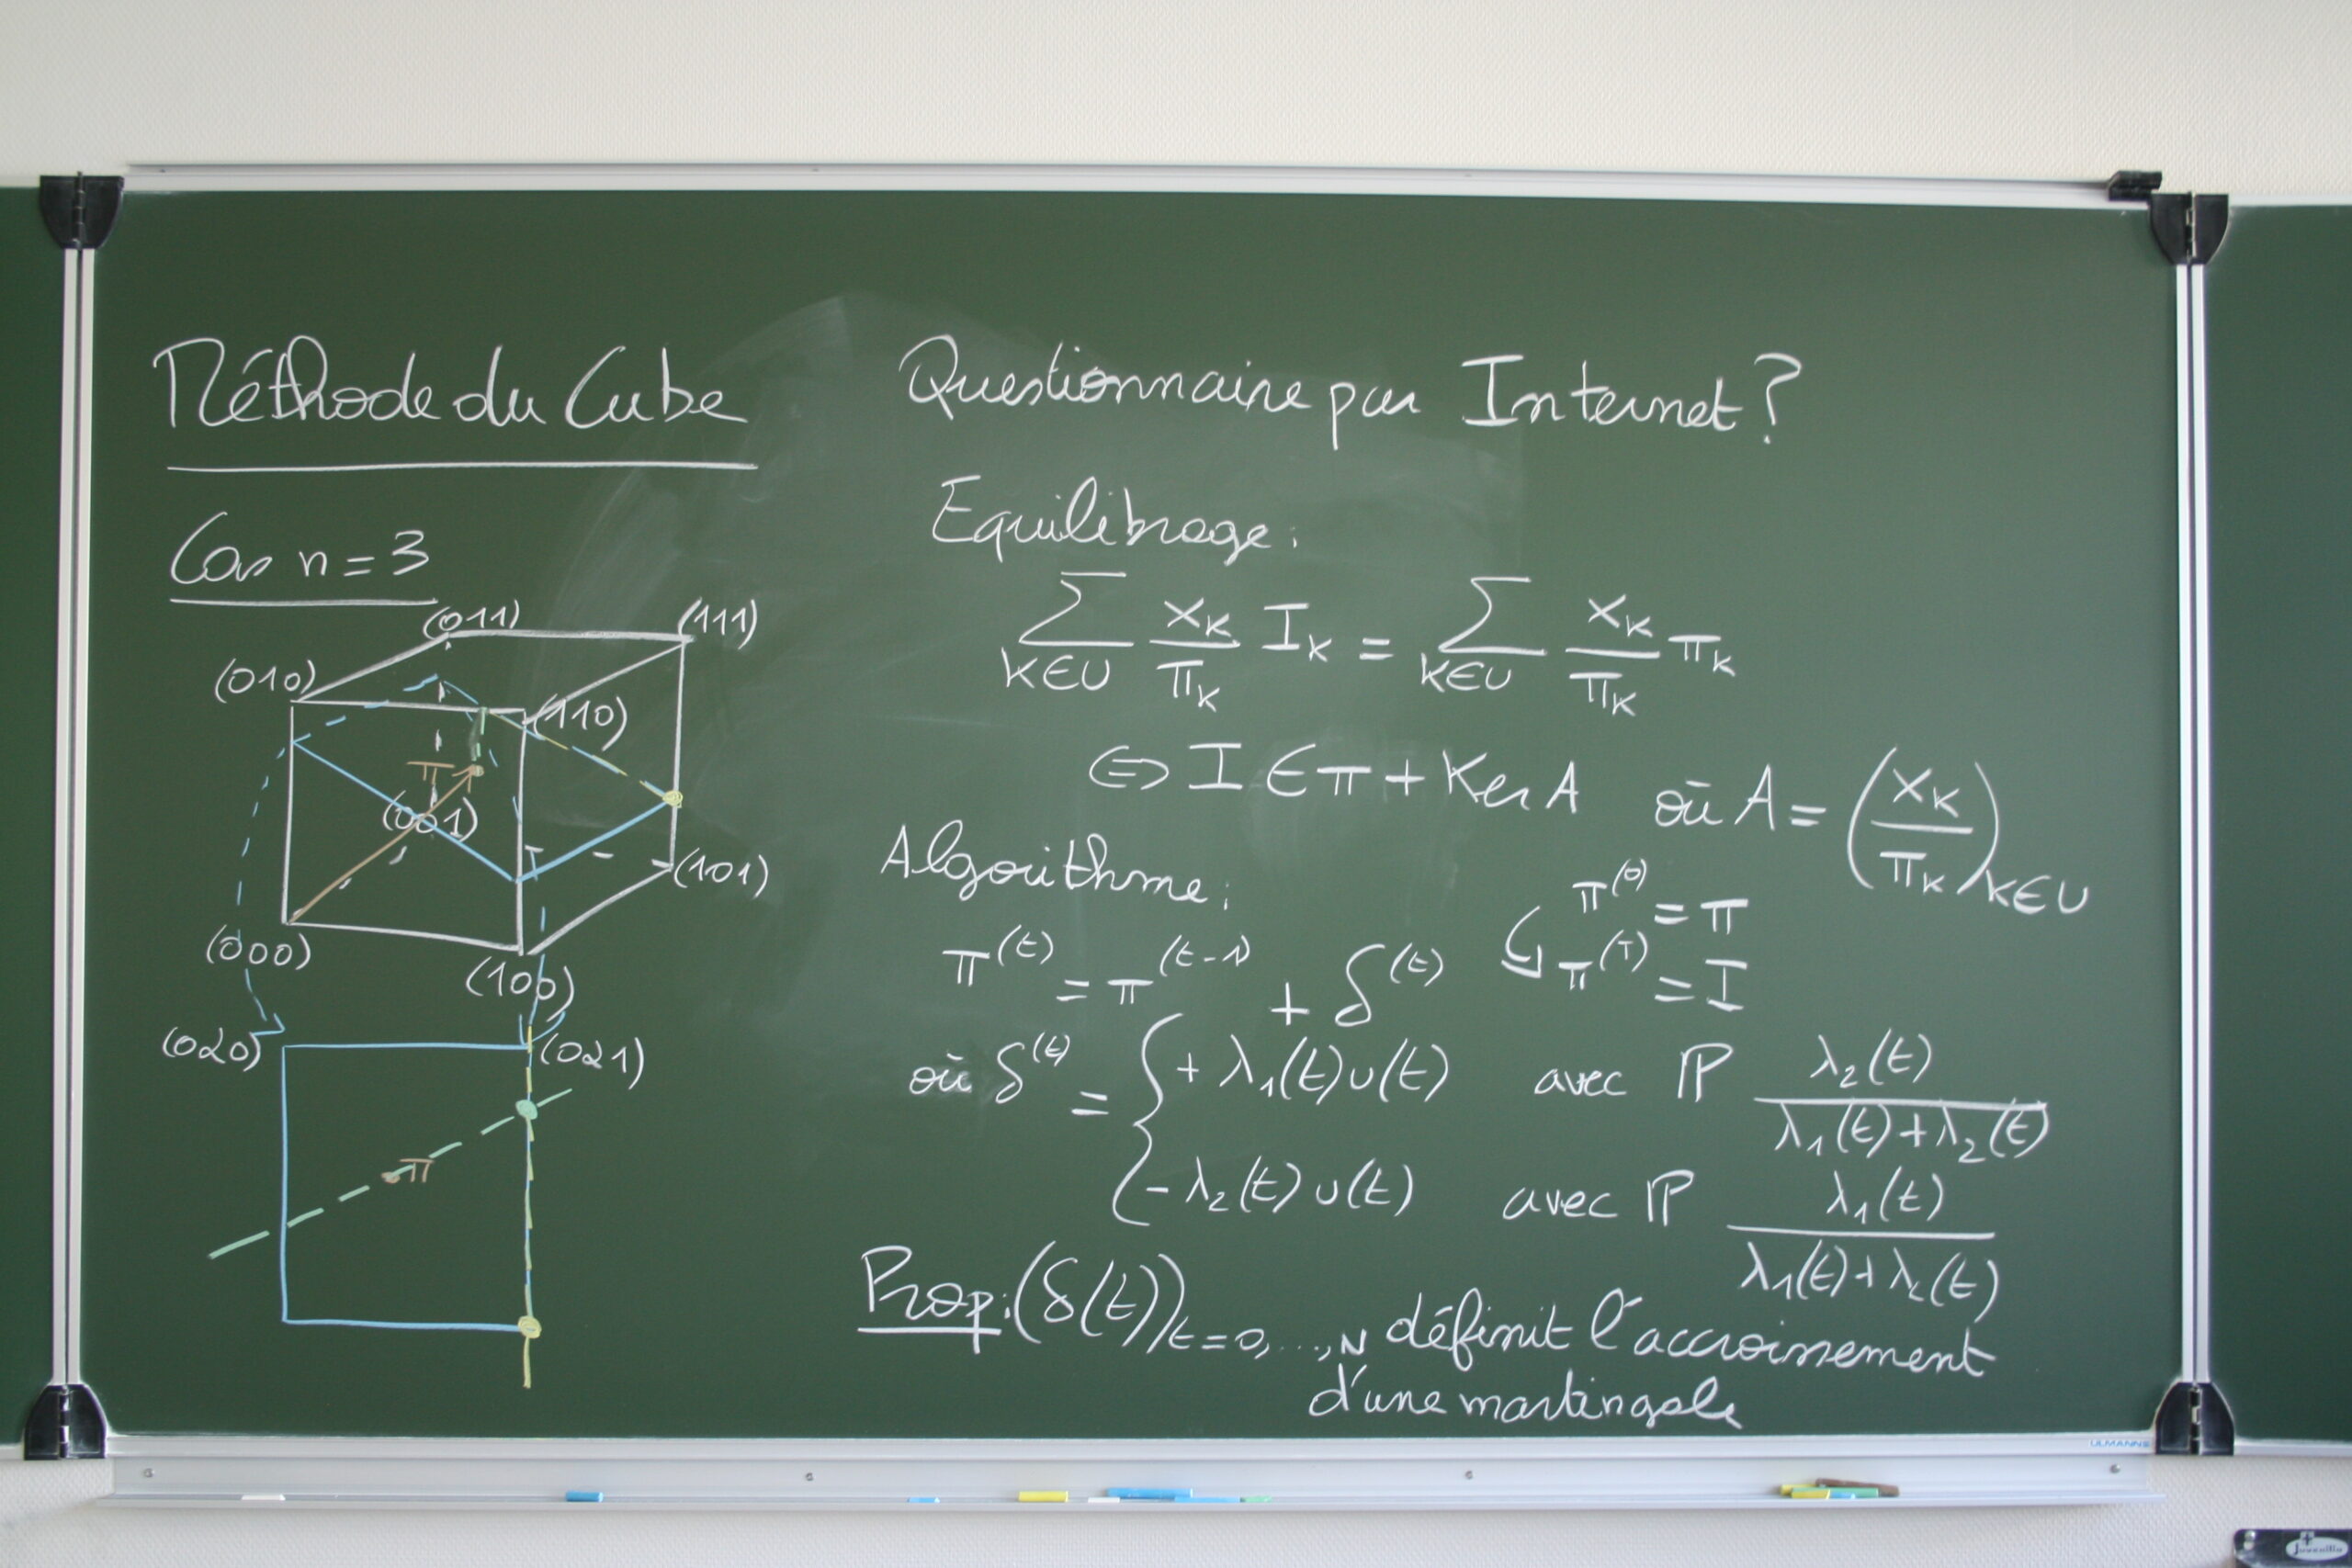 Méthode du Cube
Cas n = 3
(011)
(111)
(010)
(110)
π
(001)
(101)
(000)
(100)
(020)
(021)
π
Questionnaire par Internet ?
Equilibrage :
∑_{k∈U} x_k/π_k I_k = ∑_{k∈U} x_k/π_k π_k
⇔ I ∈ π + Ker A où A = (x_k/π_k)_{k∈U}
Algorithme :
π^(t) = π^(t-1) + δ^(t)
π^(0) = π
π^(T) = I
où δ^(t) = { + λ₁(t) u(t) avec ℙ λ₂(t)/(λ₁(t)+λ₂(t))
- λ₂(t) u(t) avec ℙ λ₁(t)/(λ₁(t)+λ₂(t))
Prop : (δ(t))_{t=0,...,N} définit l'accroissement
d'une martingale
ULMANNS